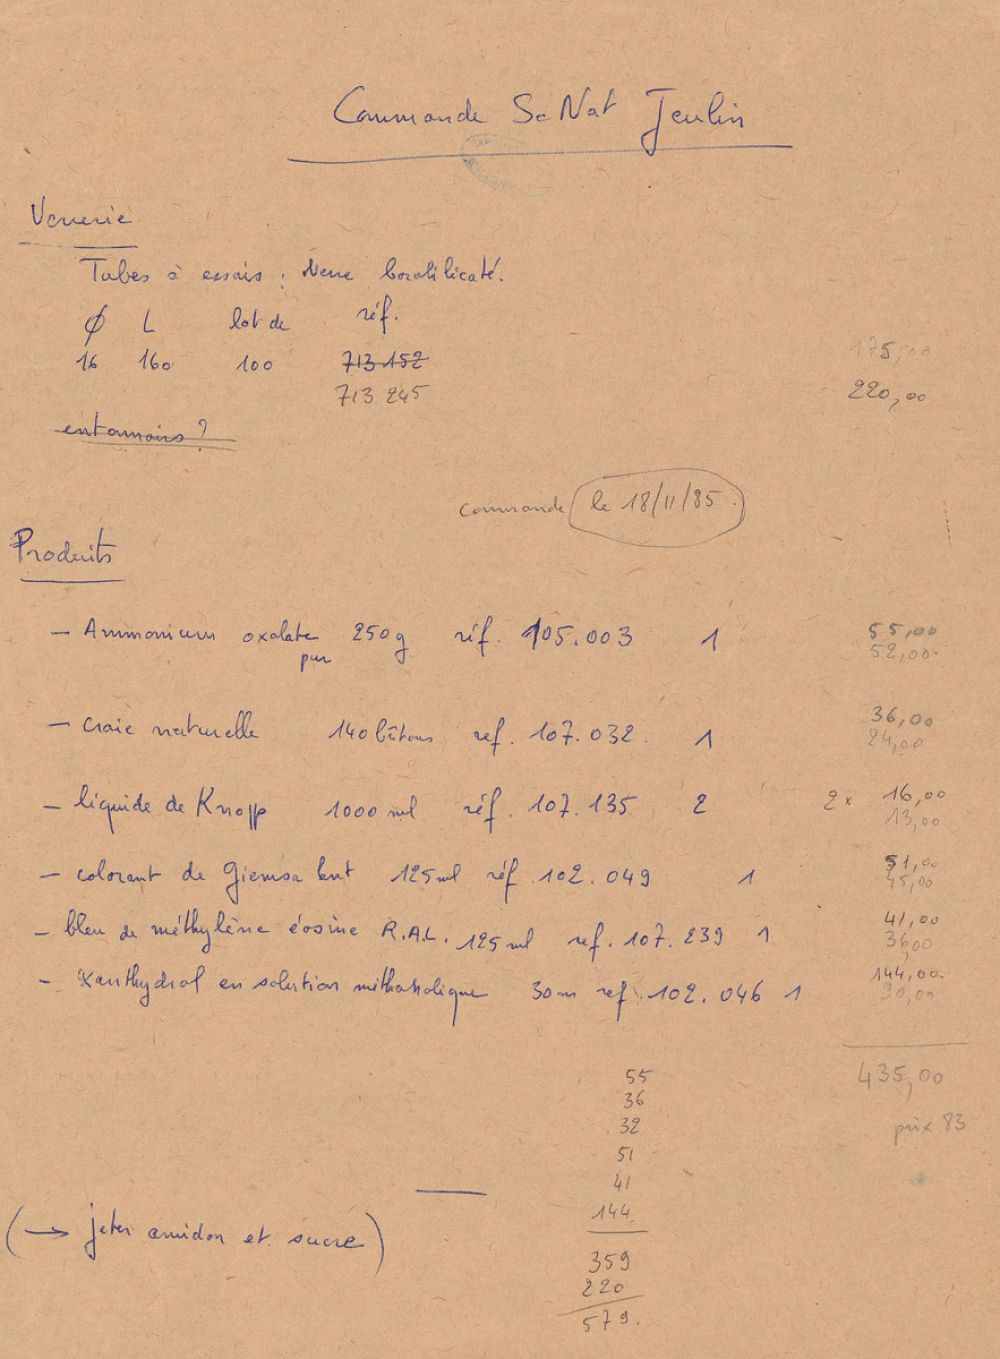 Commande Sc Nat Jeulin
Verrerie
Tubes à essais : Verre borosilicaté.
Ø L lot de réf.
16 160 100 713 152 175,00
713 245 220,00
entamoirs ?
commande le 18/11/85.
Produits
- Ammonium oxalate 250g réf. 105.003 1 55,00
pur 52,00
- craie naturelle 140 bâtons ref. 107.032. 1 36,00
24,00
- liquide de Knopp 1000 ml réf. 107.135 2 2 x 16,00
13,00
- colorant de Giemsa lent 125ml réf. 102.049 1 51,00
45,00
- bleu de méthylène éosine R.A.L. 125 ml ref. 107.239 1 41,00
36,00
- Xanthydrol en solution méthanolique 30m ref. 102.046 1 144,00
30,00
55 435,00
36
32 prix 83
51
41
144
(→ jeter amidon et sucre)
359
220
579.